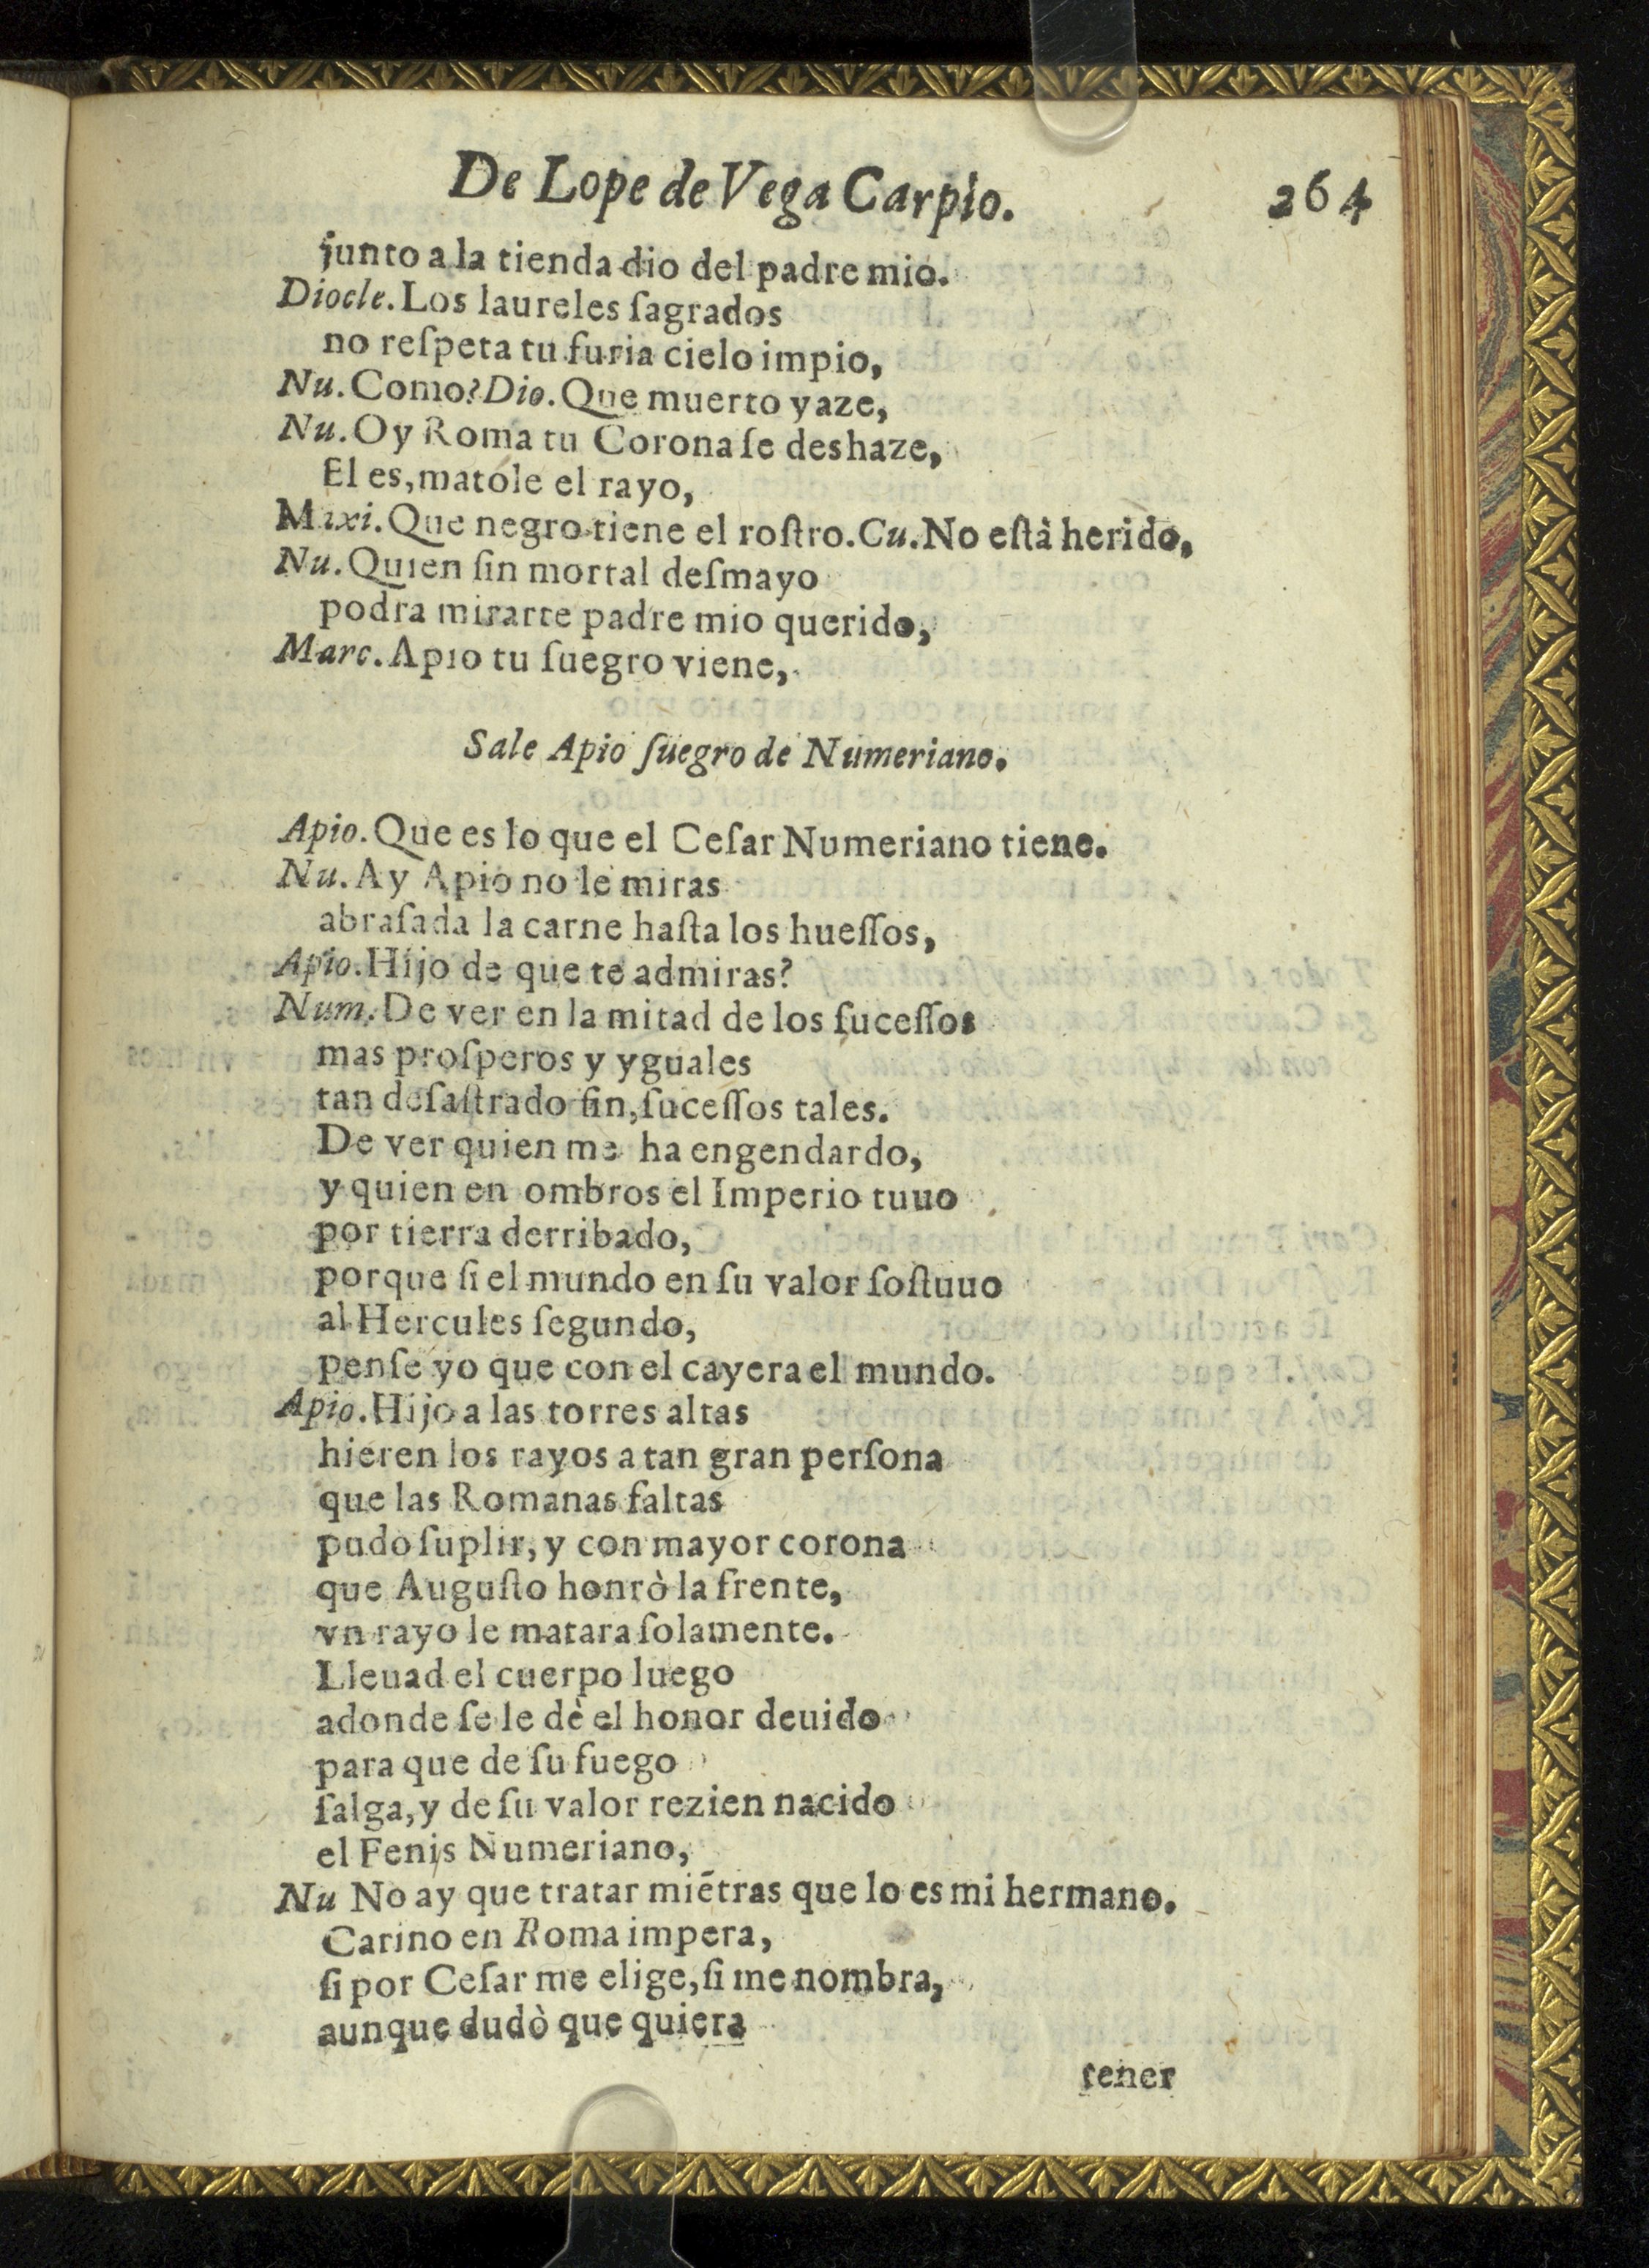 De Lope de Vega Carpio. 264
junto a la tienda dio del padre mio.
Diocle. Los laureles ſagrados
no reſpeta tu furia cielo impio,
Nu. Como? Dio. Que muerto yaze,
Nu. Oy Roma tu Corona ſe deshaze,
El es, matóle el rayo,
Maxi. Que negro tiene el roſtro. Cu. No eſtà herido,
Nu. Quien ſin mortal deſmayo
podra mirarte padre mio querido,
Marc. Apio tu ſuegro viene,
Sale Apio ſuegro de Numeriano.
Apio. Que es lo que el Ceſar Numeriano tiene.
Nu. Ay Apio no le miras
abraſada la carne haſta los hueſſos,
Apio. Hijo de que te admiras?
Num. De ver en la mitad de los ſuceſſos
mas proſperos y yguales
tan deſaſtrado fin, ſuceſſos tales.
De ver quien me ha engendardo,
y quien en ombros el Imperio tuuo
por tierra derribado,
porque ſi el mundo en ſu valor ſoſtuuo
al Hercules ſegundo,
penſe yo que con el cayera el mundo.
Apio. Hijo a las torres altas
hieren los rayos a tan gran perſona
que las Romanas faltas
pudo ſuplir, y con mayor corona
que Auguſto honrò la frente,
vn rayo le matara ſolamente.
Lleuad el cuerpo luego
adonde ſe le dè el honor deuido
para que de ſu fuego
ſalga, y de ſu valor rezien nacido
el Fenis Numeriano,
Nu No ay que tratar miẽtras que lo es mi hermano.
Carino en Roma impera,
ſi por Ceſar me elige, ſi me nombra,
aunque dudò que quiera
tener